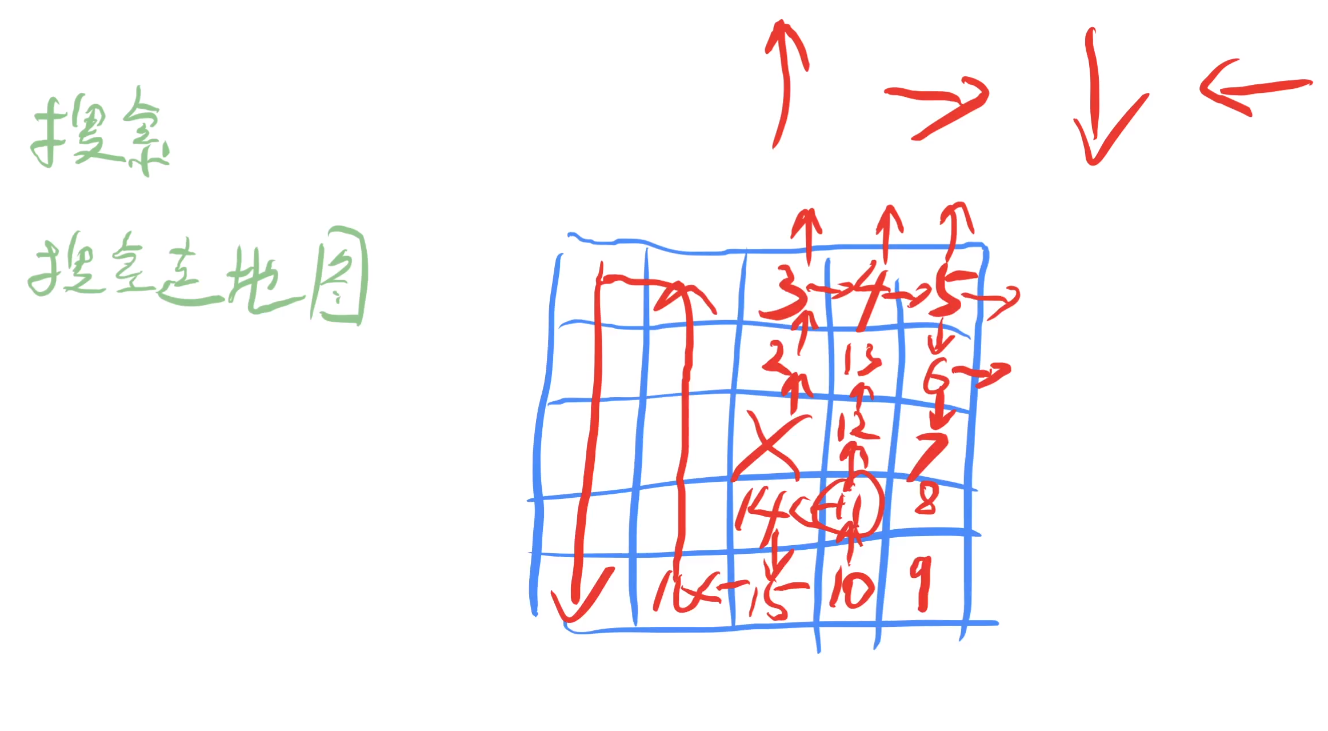 搜索
搜索走地图
3 4 5
2 13 6
12 7
14 11 8
16 15 10 9